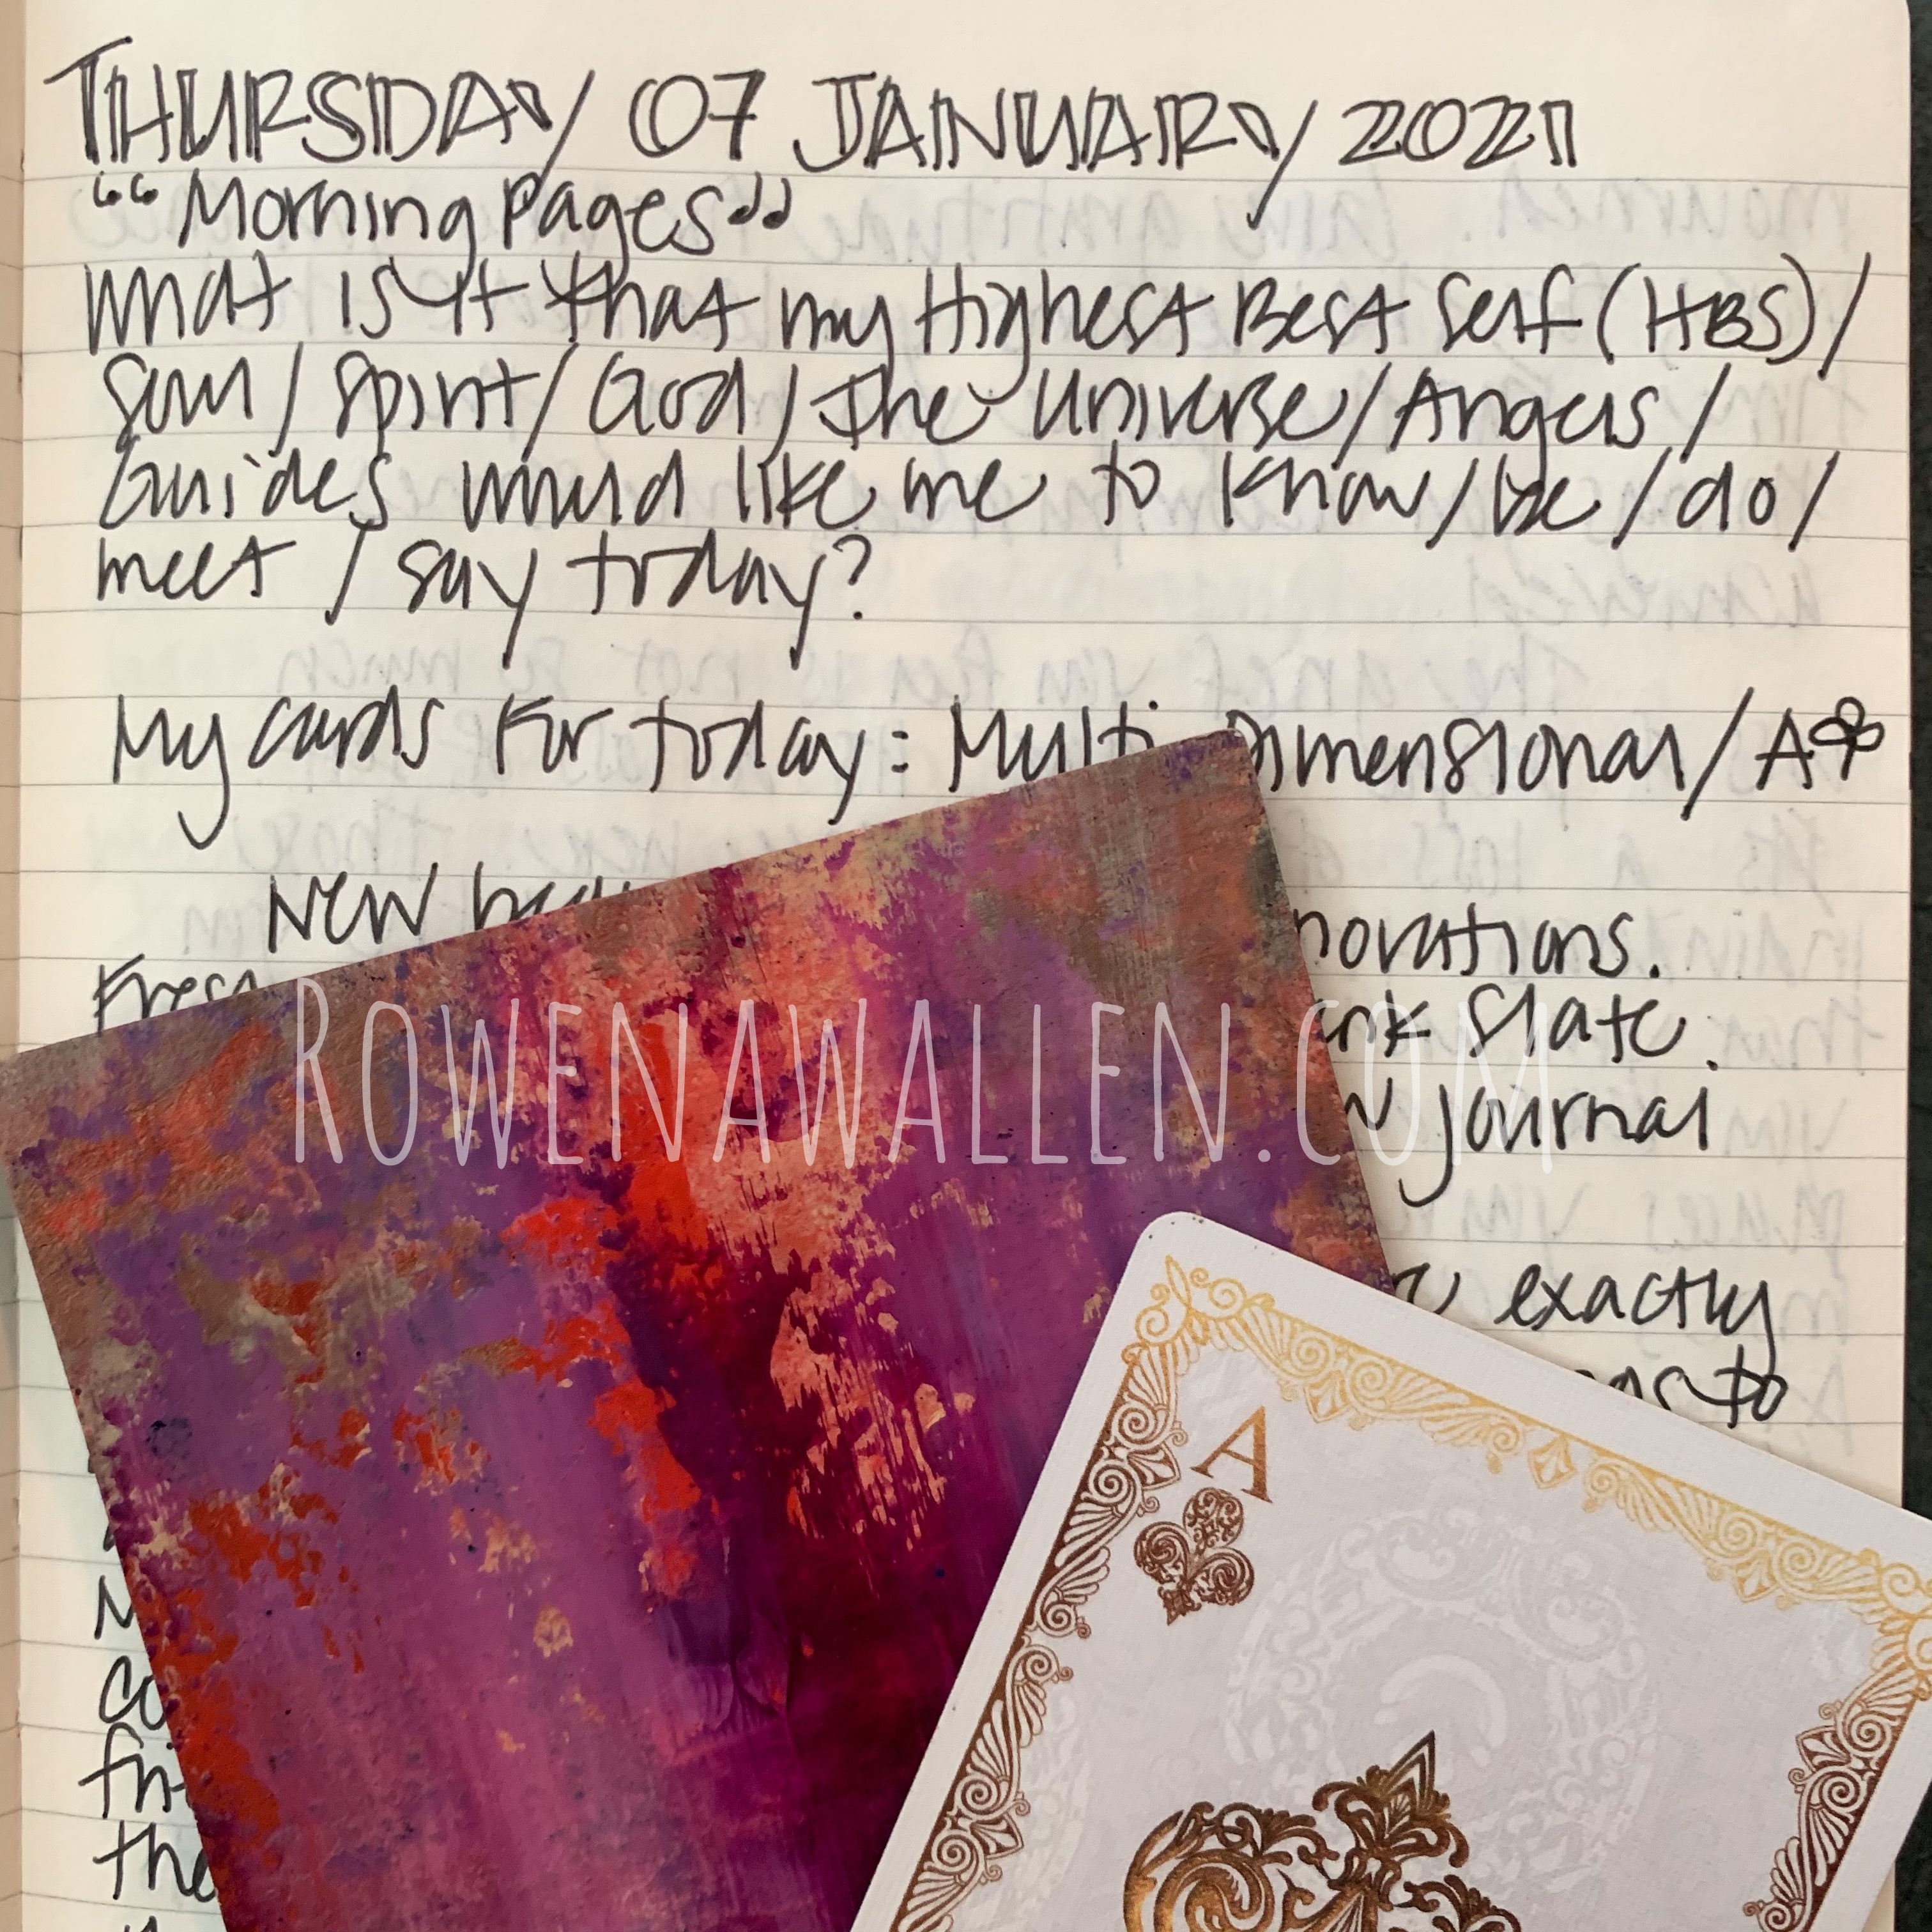 THURSDAY 07 JANUARY 2021
"Morning Pages"
What is it that my Highest Best Self (HBS)/
Soul/Spirit/God/The Universe/Angels/
Guides would like me to know/be/do/
meet/say today?
My cards for today: Multi Dimensional/A♣
New
novations.
slate.
Journal
exactly
to
ROWENAWALLEN.COM
A